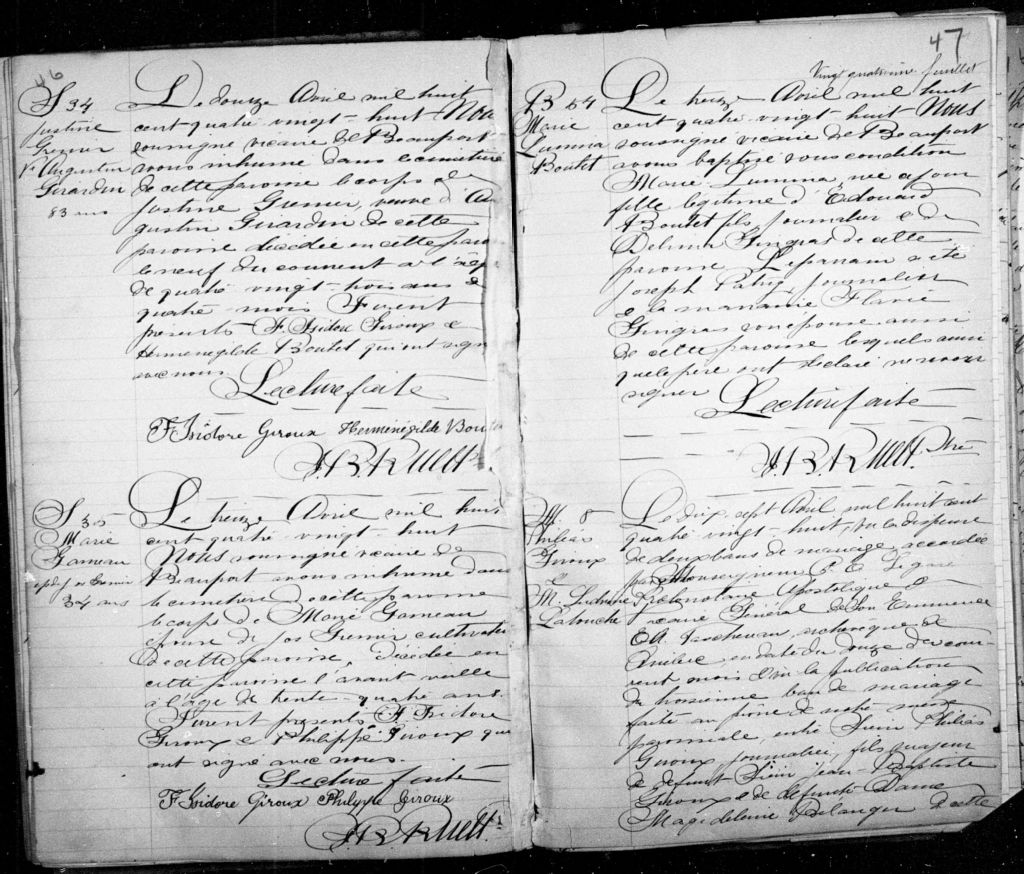 46
S 34
Justine
Grenier
Ve Augustin
Girardin
83 ans
Le douze Avril mil huit
cent quatre vingt-huit Nous
soussigné vicaire de Beauport
avons inhumé dans le cimetière
de cette paroisse le corps de
Justine Grenier, veuve d'Au
gustin Girardin de cette
paroisse décédée en cette paroisse
le neuf du courant à l'âge
de quatre vingt-trois ans et
quatre mois Furent
présents F. Isidore Giroux et
Herménégilde Boutet qui ont signé
avec nous.
Lecture faite
F. Isidore Giroux Herménégilde Boutet
S 35
Marie
Garneau
épse Jos Grenier
34 ans
Le treize Avril mil huit
cent quatre vingt-huit
Nous soussigné vicaire de
Beauport avons inhumé dans
le cimetière de cette paroisse
le corps de Marie Garneau
épouse de Jos Grenier cultivateur
de cette paroisse, décédée en
cette paroisse l'avant veille
à l'âge de trente-quatre ans.
Furent présents F. Isidore
Giroux et Philippe Giroux qui
ont signé avec nous.
Lecture faite
F. Isidore Giroux Philippe Giroux
47
Vingt quatrième feuillet
B 54
Marie
Lumina
Boutet
Le treize Avril mil huit
cent quatre vingt-huit Nous
soussigné vicaire de Beauport
avons baptisé sous condition
Marie Lumina, née ce jour
fille légitime d'Edouard
Boutet fils journalier et de
Delima Gingras de cette
paroisse. Le parrain a été
Joseph Patry journalier
et la marraine Flavie
Gingras son épouse aussi
de cette paroisse lesquels ainsi
que le père ont déclaré ne savoir
signer
Lecture faite
Ptre
M. 8
Philias
Giroux
et
M. Ludivine
Latouche
Le dix sept Avril mil huit cent
quatre vingt-huit, vu la dispense
de deux bans de mariage accordée
par Monseigneur C. E. Légaré
Protonotaire Apostolique et
vicaire Général de Son Eminence
E. A. Taschereau, archevêque de
Québec en date du douze du cou
rent mois vu la publication
du troisième ban de mariage
faite au prône de notre messe
paroissiale, entre Sieur Philias
Giroux journalier, fils majeur
de défunt Sieur Jean-Baptiste
Giroux et de défunte Dame
Magdeleine Bélanger de cette